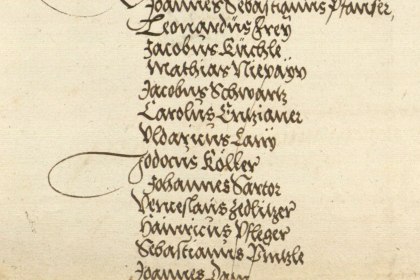 Joannes Sebastianus Pfauser,
Leonardus Frey
Jacobus Küchle
Mathias Niepaÿn
Jacobus Schwartz
Carolus
Vldaricus
Jodocus Köller
Johannes Sartor
Venceslaus Zedlitzer
Hainricus Pfleger
Sebastianus
Joannes